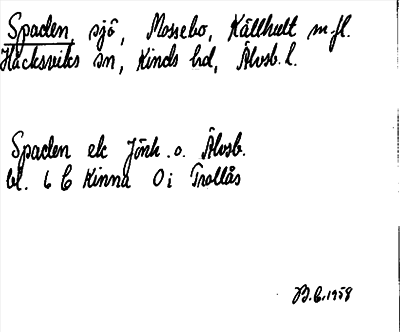 Spaden, sjö, Mossebo, Källhult m.fl.
Håcksviks sn, Kinds hd, Älvsb. l.
Spaden ek Jönk. o. Älvsb.
bl. 6 C Kinna 0 i Trollås
B.C. 1958